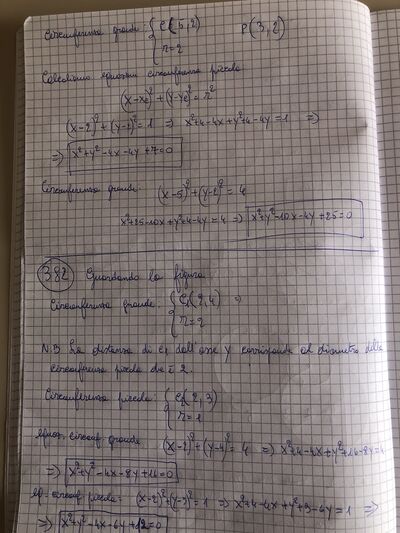 Circonferenza grande { C(5,2) P(3,2)
r=2
Calcoliamo equazioni circonferenza piccola
(x-xc)²+(y-yc)²=r²
(x-2)²+(y-2)²=1 => x²+4-4x+y²+4-4y=1 =>
=> x²+y²-4x-4y+7=0
Circonferenza grande: (x-5)²+(y-2)²=4
x²+25-10x+y²+4-4y=4 => x²+y²-10x-4y+25=0
382 Guardando la figura
Circonferenza grande: { C1(2,4) =>
r=2
N.B La distanza di C1 dall'asse y corrisponde al diametro della
circonferenza piccola che è 2.
Circonferenza piccola: { C2(2,3)
r=1
equaz. circonf. grande (x-2)²+(y-4)²=4 => x²+4-4x+y²+16-8y=4
=> x²+y²-4x-8y+16=0
eq. circonf piccola= (x-2)²+(y-3)²=1 => x²+4-4x+y²+9-6y=1 =>
=> x²+y²-4x-6y+12=0